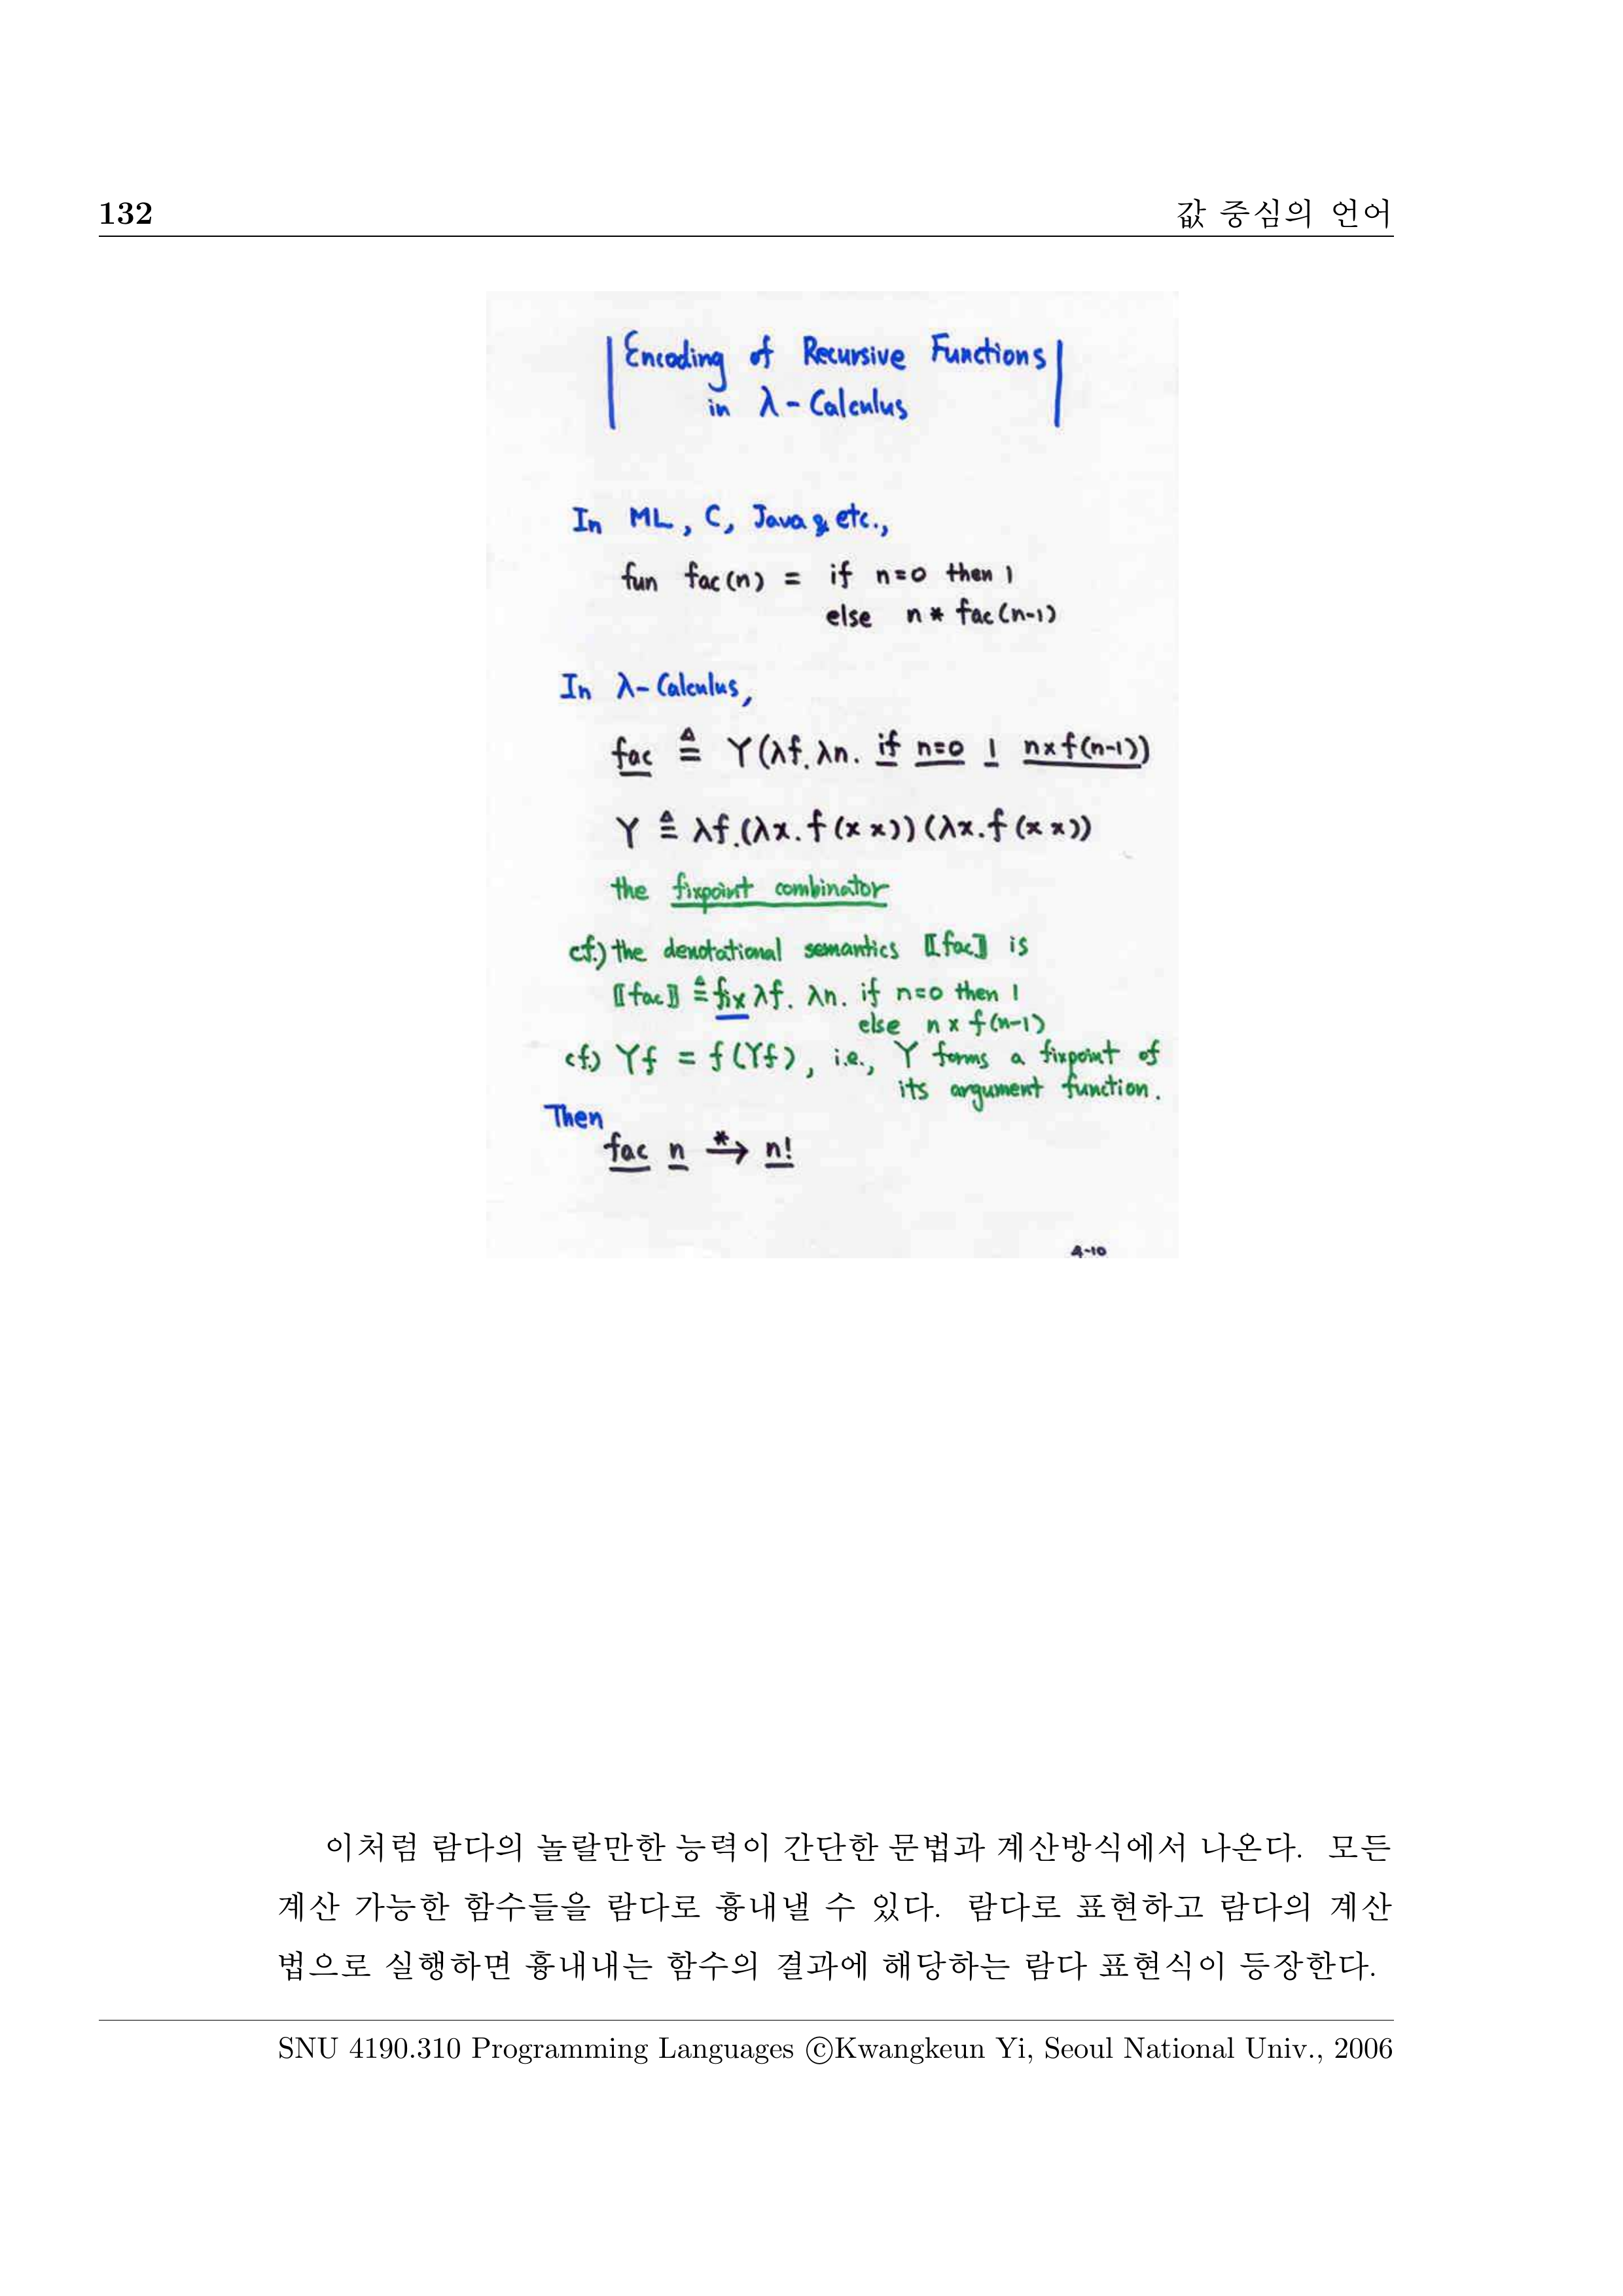 132 값 중심의 언어
Encoding of Recursive Functions
in λ-Calculus
In ML, C, Java & etc.,
fun fac(n) = if n=0 then 1
else n * fac(n-1)
In λ-Calculus,
fac ≜ Y(λf.λn. if n=0 1 n×f(n-1))
Y ≜ λf.(λx.f(x x))(λx.f(x x))
the fixpoint combinator
cf.) the denotational semantics ⟦fac⟧ is
⟦fac⟧ ≜ fix λf. λn. if n=0 then 1
else n × f(n-1)
cf.) Yf = f(Yf), i.e., Y forms a fixpoint of
its argument function.
Then
fac n →* n!
4-10
이처럼 람다의 놀랄만한 능력이 간단한 문법과 계산방식에서 나온다. 모든
계산 가능한 함수들을 람다로 흉내낼 수 있다. 람다로 표현하고 람다의 계산
법으로 실행하면 흉내내는 함수의 결과에 해당하는 람다 표현식이 등장한다.
SNU 4190.310 Programming Languages ©Kwangkeun Yi, Seoul National Univ., 2006